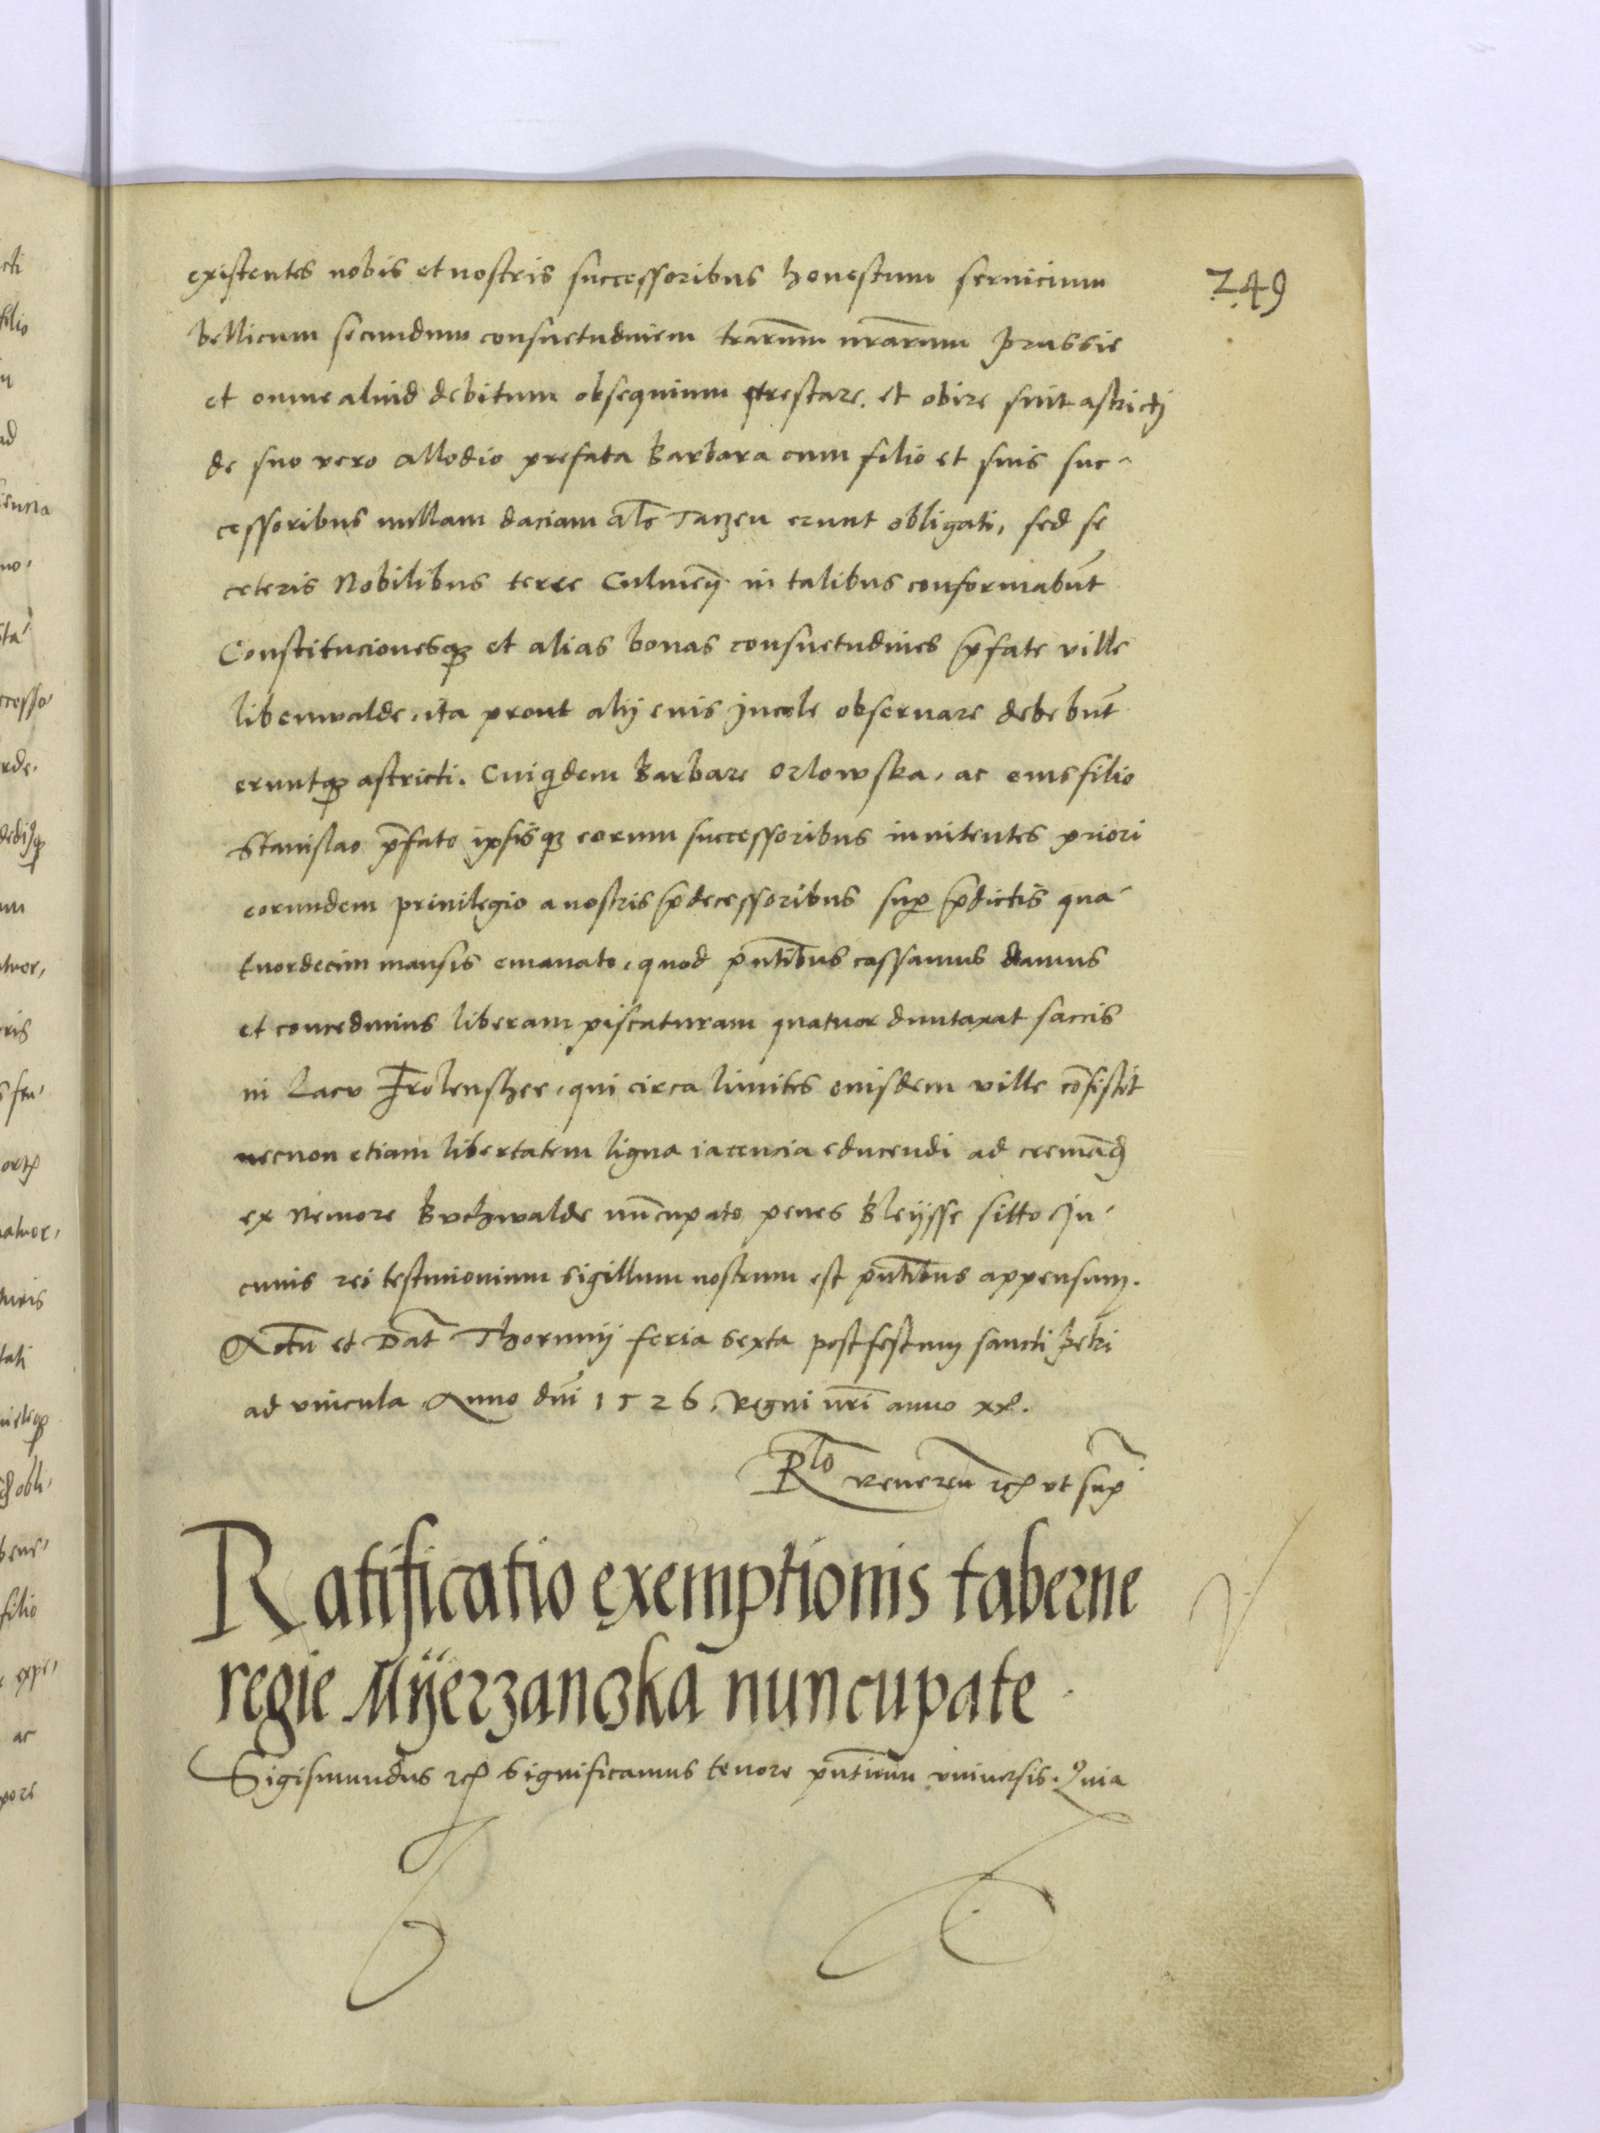 249
existentes nobis et nostris successoribus honestum seruicium
bellicum secundum consuetudinem trarum nrarum Prussie
et omne aliud debitum obsequium prestare et obire sint astricti
de suo vero allodio prefata Barbara cum filio et suis suc-
cessoribus nullam daciam als Tarzen erunt obligati, sed se
ceteris Nobilibus terre Culmen in talibus conformabunt
Constitucionesq et alias bonas consuetudines pfate ville
libenwalde, ita prout alij euis Incole obseruare debebunt
eruntq astricti. Cuiqdem Barbare Orlowska, ac eius filio
Stanislao pfato ipsisq eorum successoribus innitentes priori
eorundem priuilegio a nostris pdecessoribus sup pdictis qua-
tuordecim mansis emanato, quod pntibus cassamus damus
et concedimus liberam piscaturam quatuor duntaxat saccis
in Lacu Trolenshee, qui circa limites eiusdem ville cosistit
necnon etiam libertatem ligna iacencia educendi ad cremand
ex Nemore Buchwalde nuncupato penes Bleysse sitto In
cuius rei testimonium sigillum nostrum est pntibus appensum.
Actu et Dat Thorunij feria sexta post festum sancti Petri
ad vincula Anno dni 1526. Regni nri anno xx.
Rlo Reueren etc ut sup
Ratificatio exemptionis taberne
regie Mÿerzanczka nuncupate
Sigismundus etc Significamus tenore pntium vniuersis. Quia